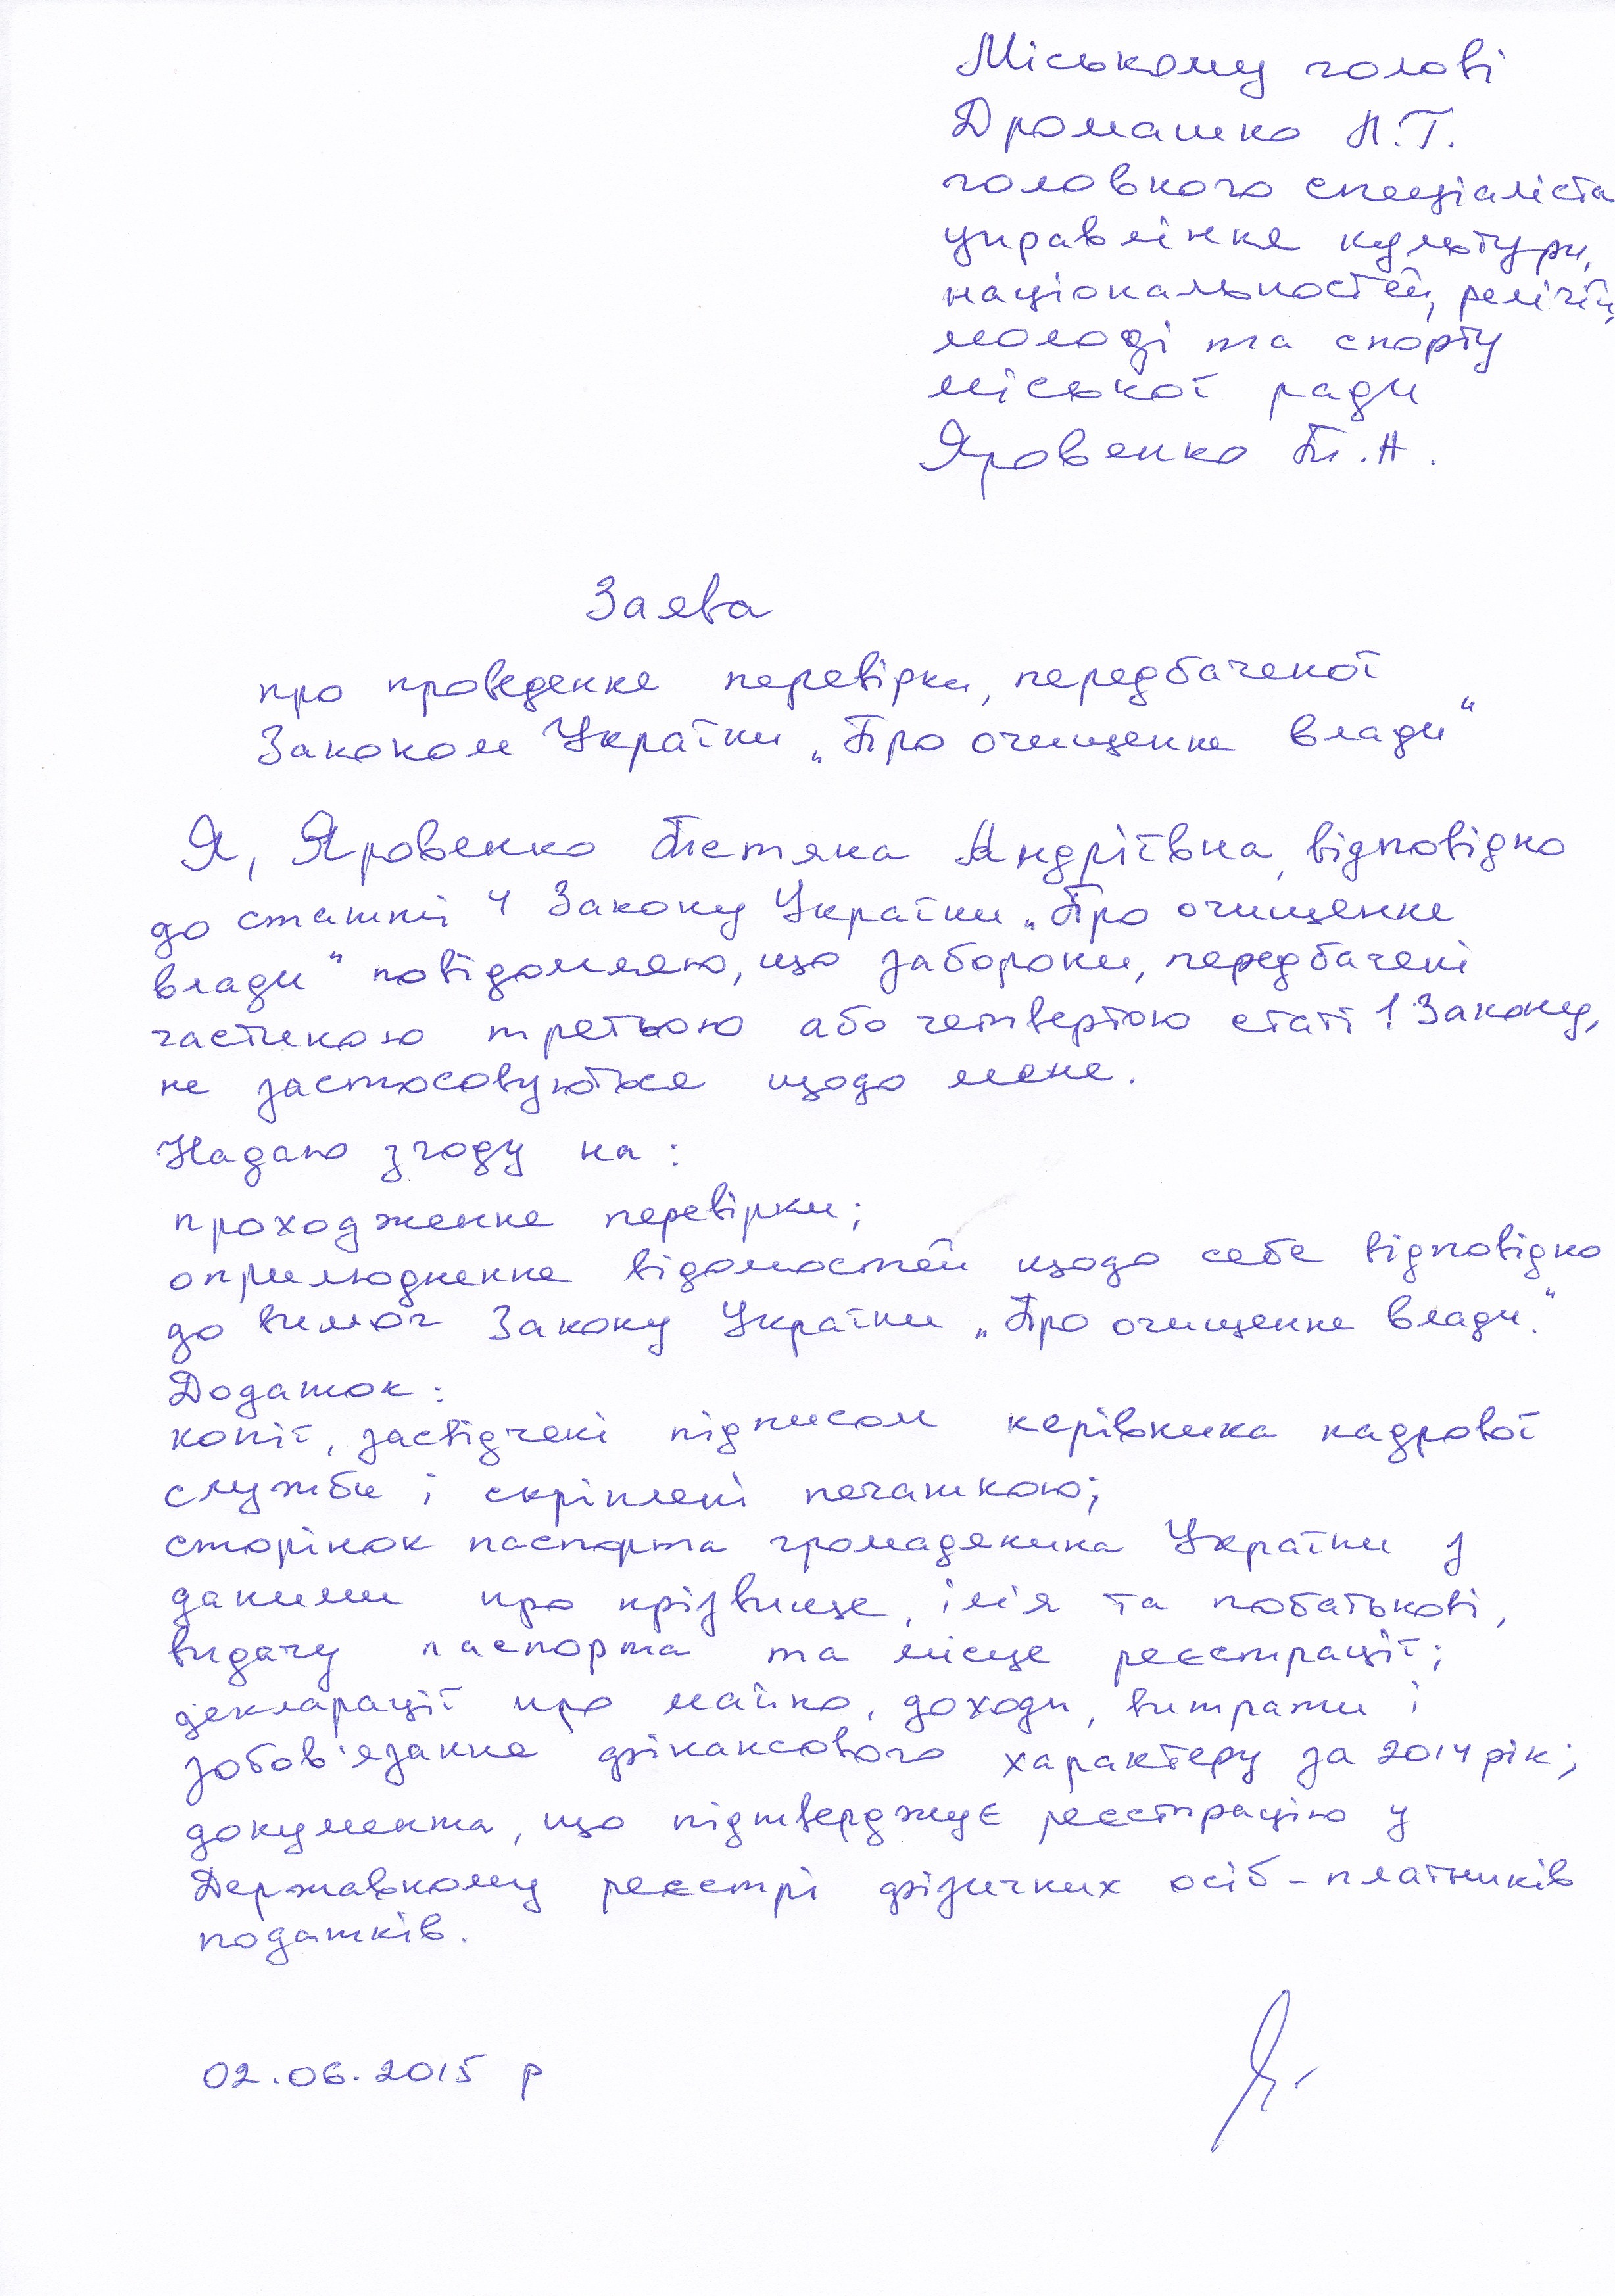 Міському голові
Дромашко Н.Г.
головного спеціаліста
управління культури,
національностей, релігій,
молоді та спорту
міської ради
Яровенко Т.А.
Заява
про проведення перевірки, передбаченої
Законом України „Про очищення влади“
Я, Яровенко Тетяна Андріївна, відповідно
до статті 4 Закону України „Про очищення
влади“ повідомляю, що заборони, передбачені
частиною третьою або четвертою статі 1 Закону,
не застосовуються щодо мене.
Надаю згоду на:
проходження перевірки;
оприлюднення відомостей щодо себе відповідно
до вимог Закону України „Про очищення влади.“
Додаток:
копії, засвідчені підписом керівника кадрової
служби і скріплені печаткою;
сторінок паспорта громадянина України з
даними про прізвище, ім'я та побатькові,
видачу паспорта та місце реєстрації;
декларації про майно, доходи, витрати і
зобов'язання фінансового характеру за 2014 рік;
документа, що підтверджує реєстрацію у
Державному реєстрі фізичних осіб-платників
податків.
02.06.2015 р